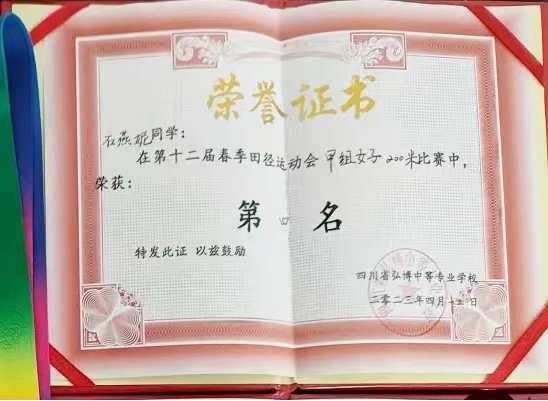 荣誉证书
石燕妮同学:
在第十二届春季田径运动会 甲组女子 200米比赛中,
荣获:
第 四 名
特发此证 以兹鼓励
四川省弘博中等专业学校
二零二三年四月十 日